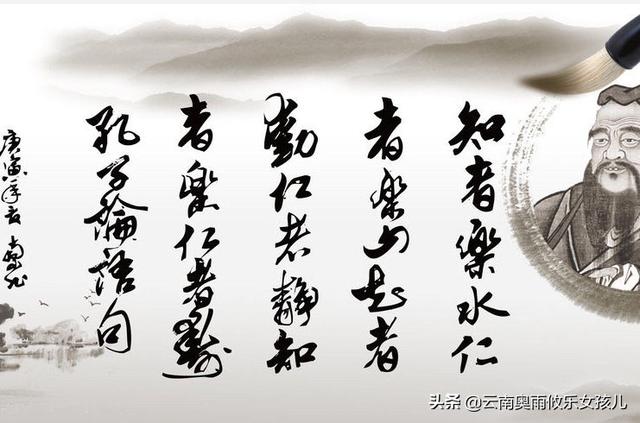 知者樂水仁
者樂山知者
動仁者靜知
者樂仁者壽
孔子論語句
庚寅年夏
头条 @云南奥雨攸乐女孩儿